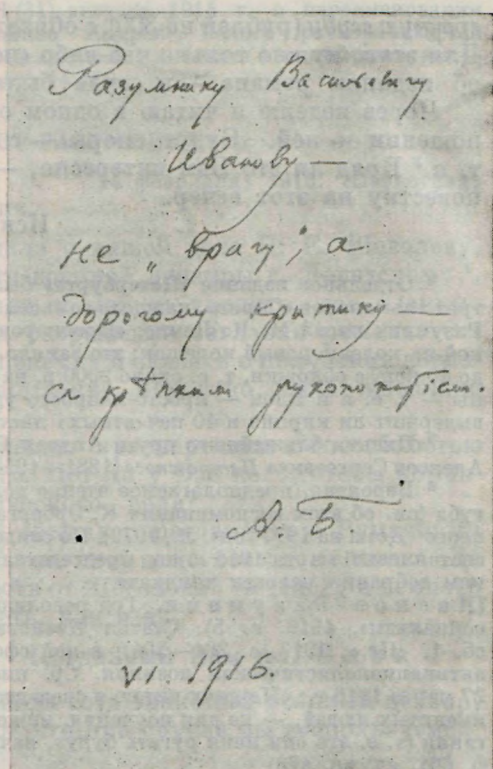 Разумнику Васильевичу
Иванову —
не „врагу“, а
дорогому критику —
съ крѣпкимъ рукопожатіемъ.
А Б
VI 1916.